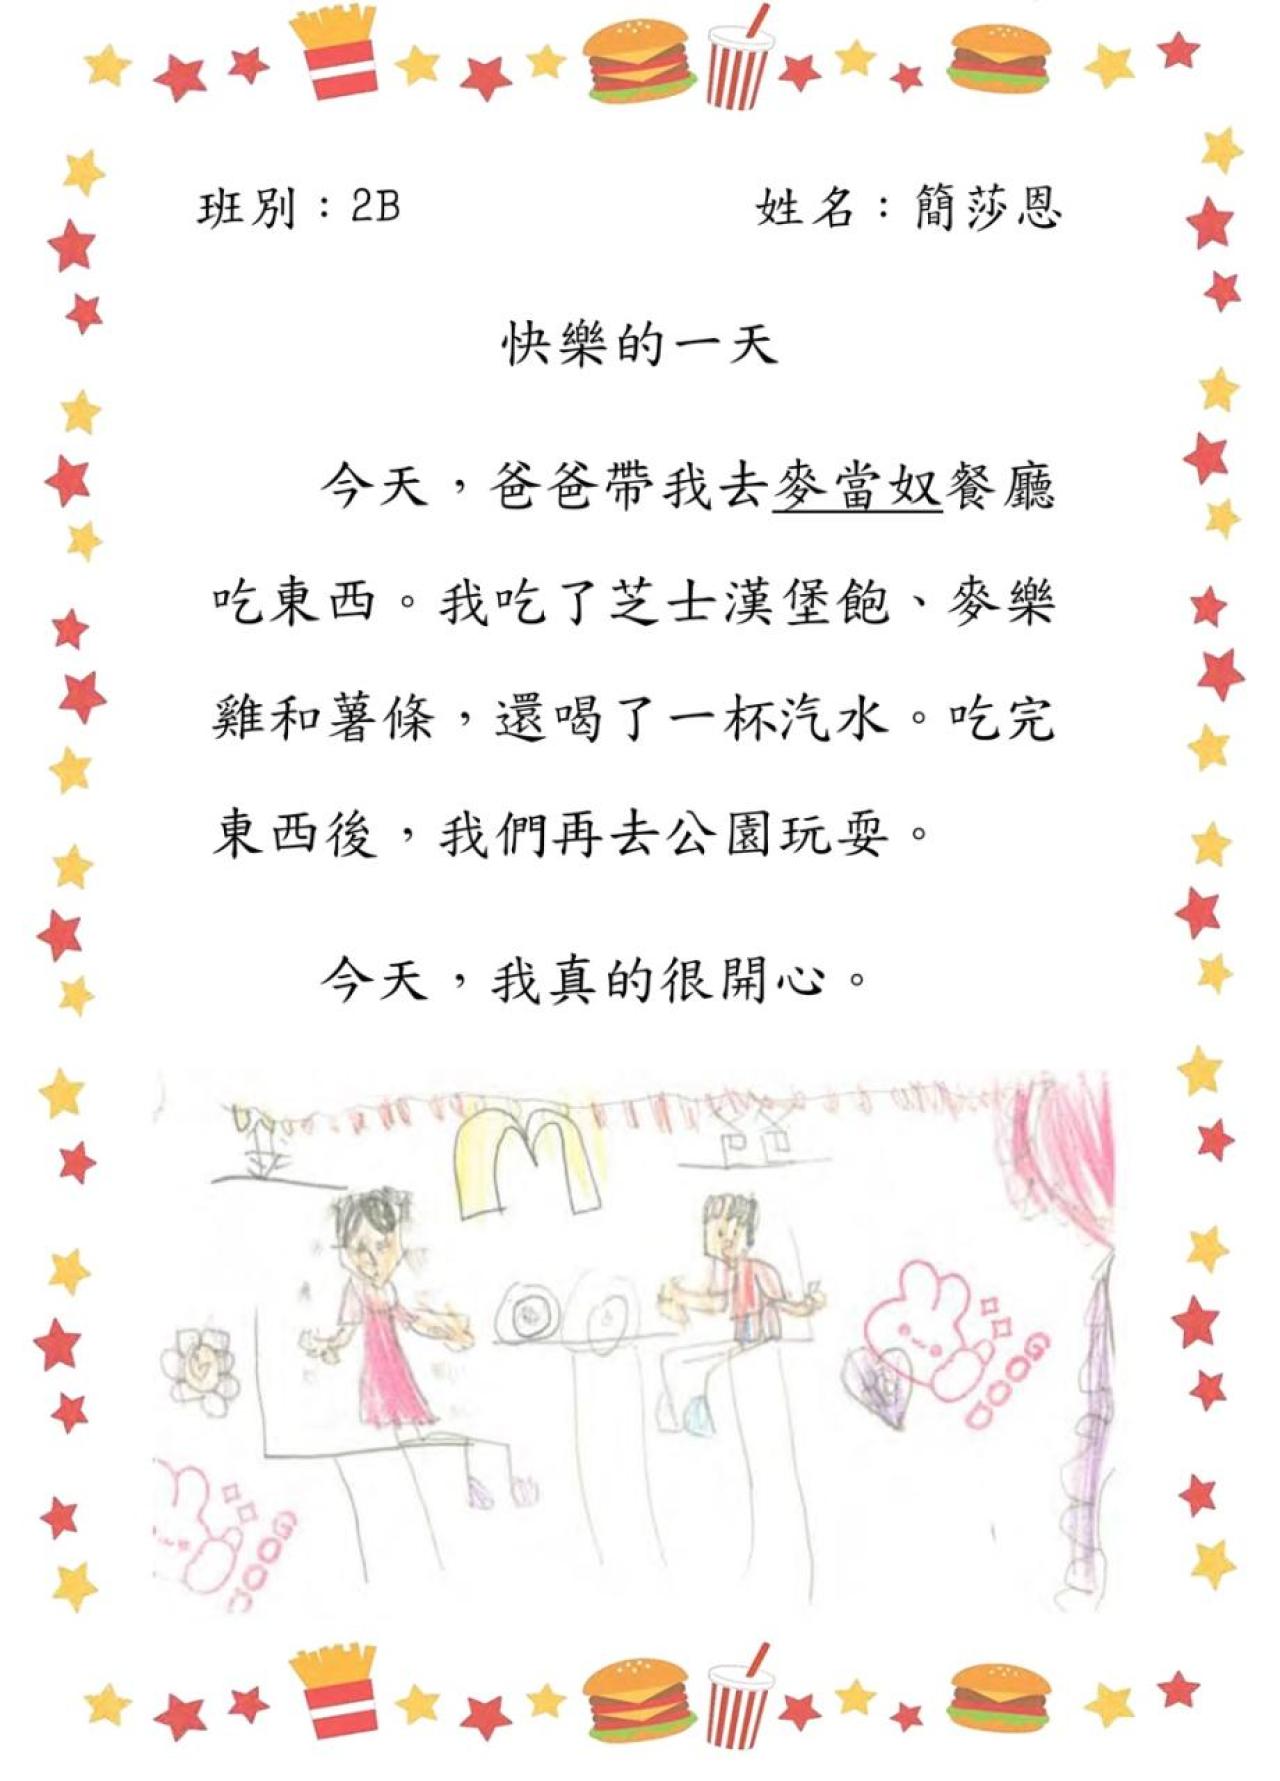 班別：2B 姓名：簡莎恩
快樂的一天
今天，爸爸帶我去麥當奴餐廳
吃東西。我吃了芝士漢堡飽、麥樂
雞和薯條，還喝了一杯汽水。吃完
東西後，我們再去公園玩耍。
今天，我真的很開心。
GOOD
GOOD